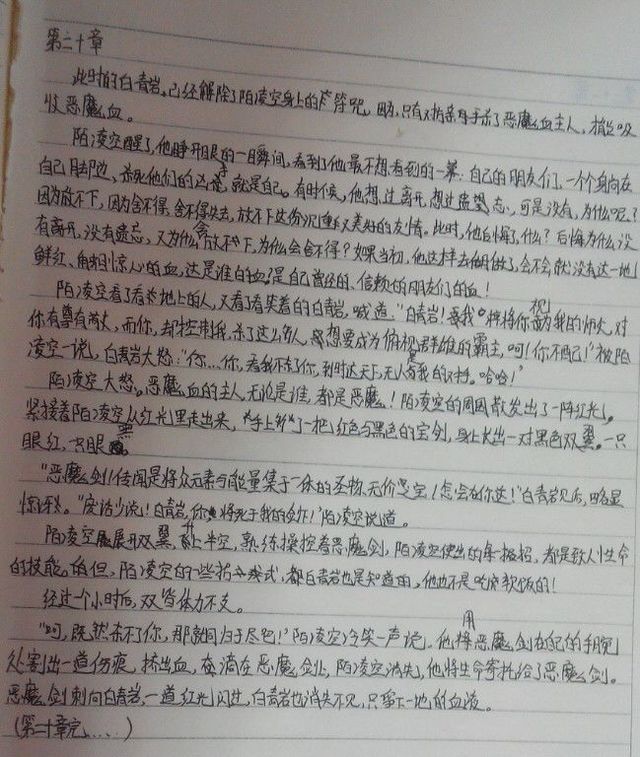 第二十章
此时的白青岩,已经解除了陌凌空身上的符咒。因为,只有对指亲身手杀了恶魔血主人,撸出吸
收恶魔血。
陌凌空醒了,他睁开眼的一瞬间,看到了他最不想看到的一幕:自己的朋友们,一个个身向在
自己脚边,杀死他们的凶手,就是自己。有时候,他想过离开,想过遗忘,可是没有,为什么呢?
因为放不下,因为舍不得,舍不得失去,放不下这份沉重又美好的友情。此时,他后悔了,什么?后悔为什么没
有离开,没有遗忘,又为什么会放不下,为什么会舍不得?如果当初,他这样去做做了,会不会就没有这一地
鲜红、触目惊心的血,这是谁的血?是自己曾经的、信赖的朋友们的血!
陌凌空看了看地上的人,又看了看笑着的白青岩,喊道:“白青岩!我将你视为我的师父,对
你有尊有尚,而你,却控制我,杀了这么多人,想要成为俯视群雄的霸主,呵!你不配!”被陌
凌空一说,白青岩大怒:“你…你,看我不杀了你,到时达天下,无人是我的对手。哈哈!”
陌凌空大怒。恶魔血的主人,无论是谁,都是恶魔!陌凌空的周围散发出了一阵红光。
紧接着陌凌空从红光里走出来,手上多了一把红色与黑色的宝剑,身上长出一对黑色双翼。一只
眼红,一只眼黑。
“恶魔剑!传闻是将众元素与能量集于一体的圣物,无价之宝!怎会在你这!”白青岩见后,略显
惊讶。“废话少说!白青岩,你将死于我的剑下!”陌凌空说道。
陌凌空展开双翼,升上半空,熟练操控着恶魔剑,陌凌空使出的每一招,都是致人性命
的技能。但,陌凌空的一些招式,白青岩也是知道的,他也不是吃软饭的!
经过一个小时后,双皆体力不支。
“呵,既然杀不了你,那就同归于尽吧!”陌凌空冷笑一声说。他用恶魔剑在自己的手腕
处割出一道伤痕,挤出血,滴在恶魔剑上,陌凌空消失,他将生命寄托给了恶魔剑。
恶魔剑刺向白青岩,一道红光闪过,白青岩也消失不见,只留下一地的血液。
(第二十章完.....)